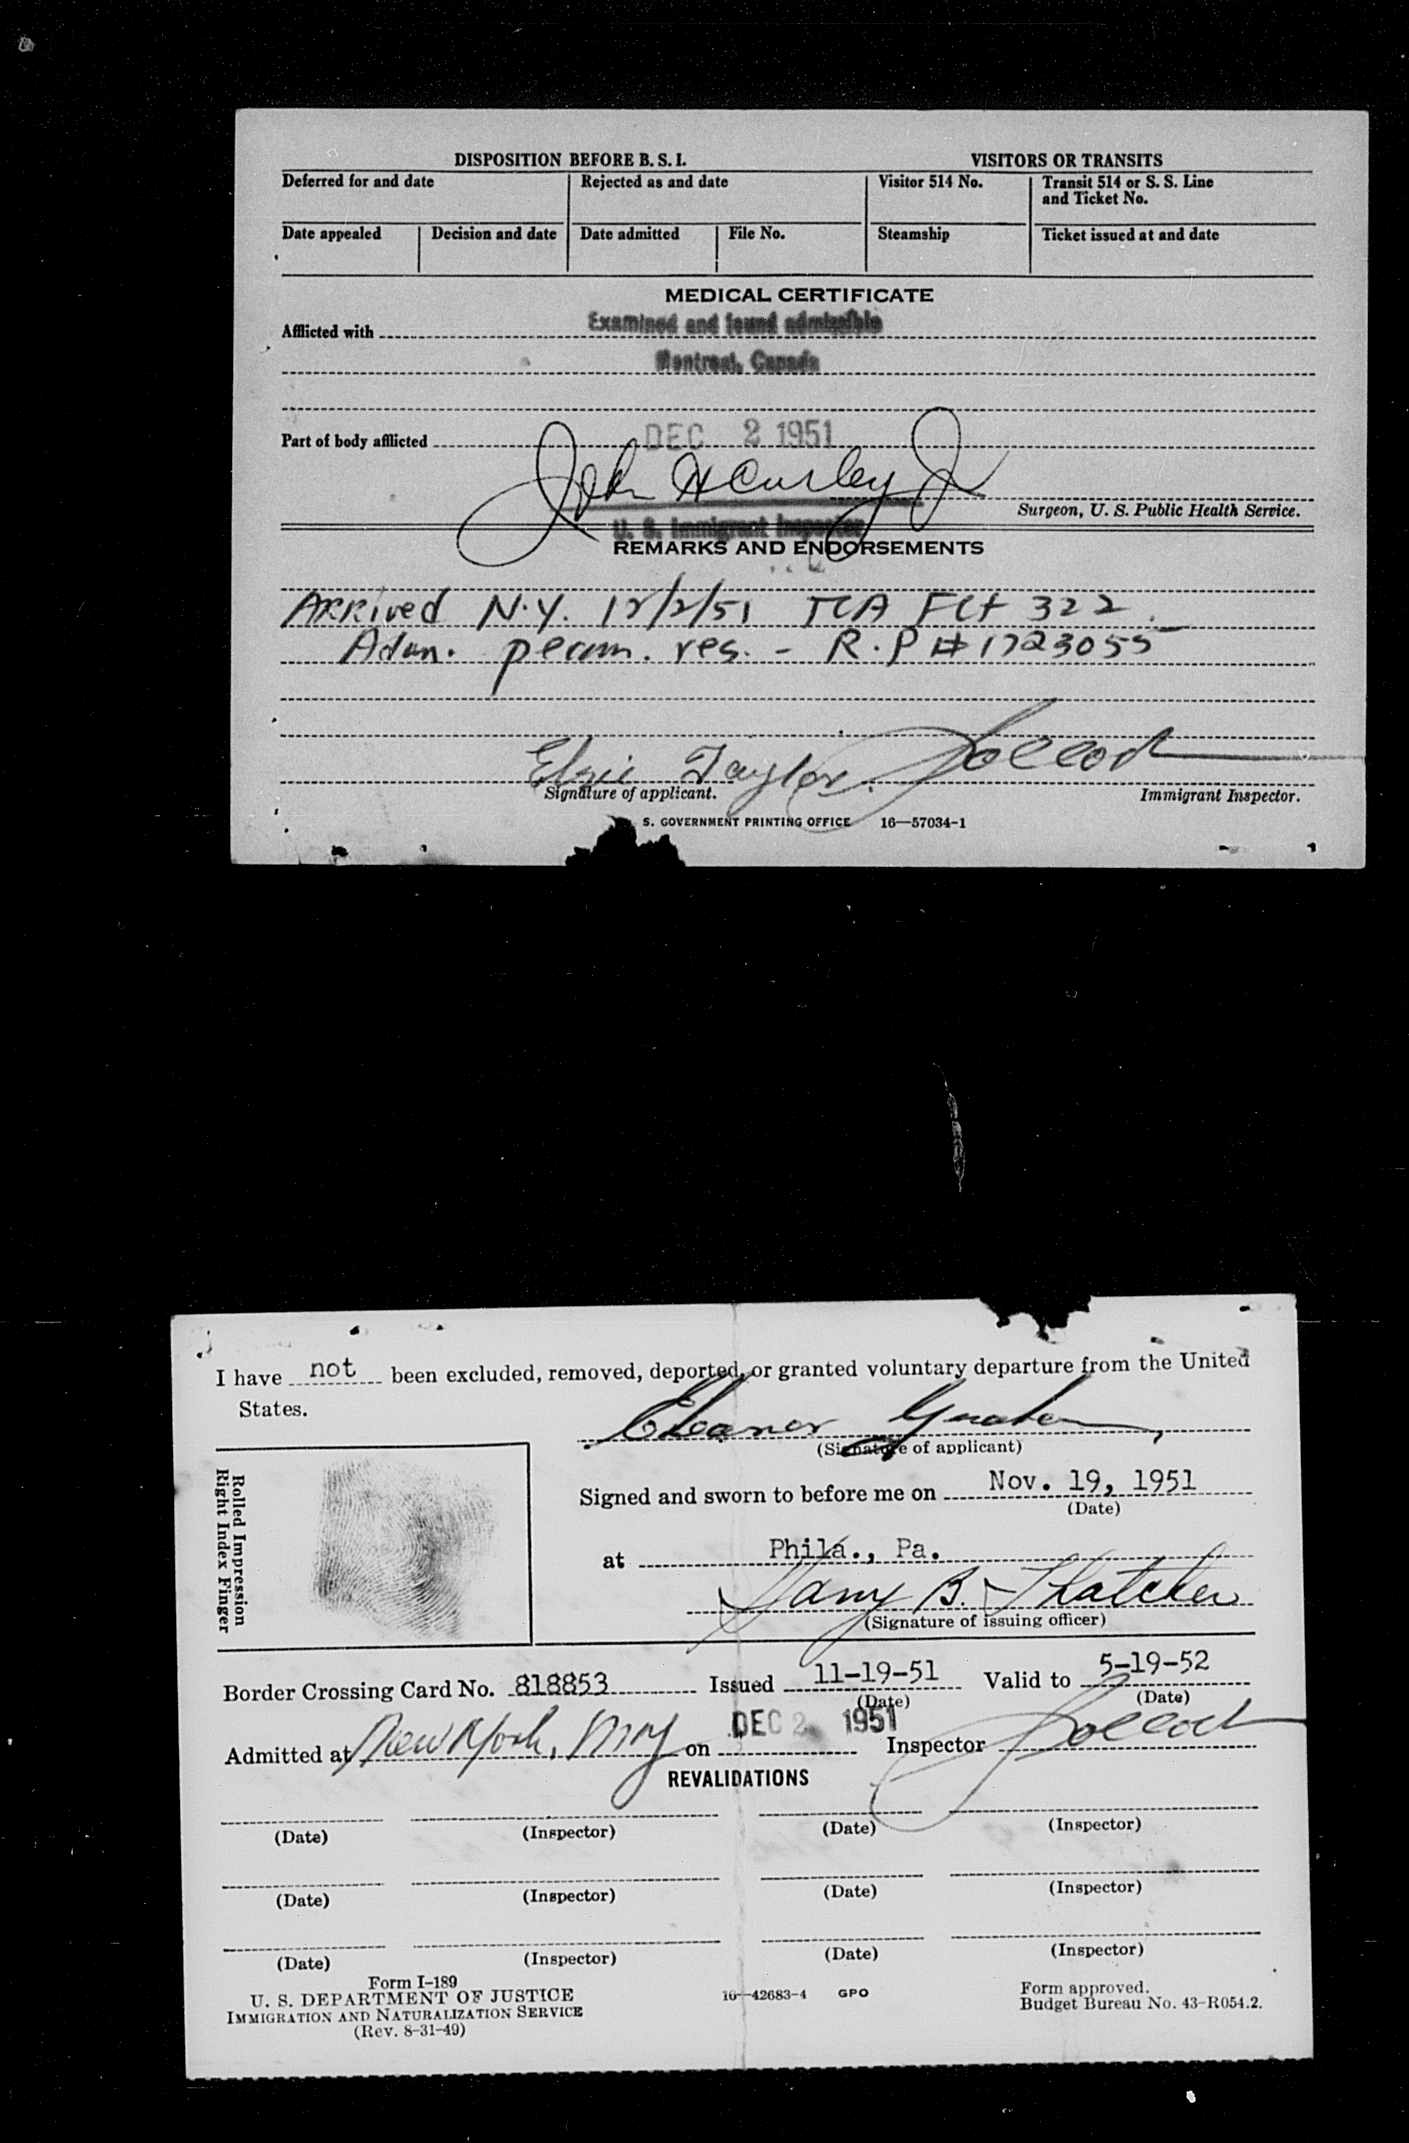 DISPOSITION BEFORE B. S. I. VISITORS OR TRANSITS
Deferred for and date Rejected as and date Visitor 514 No. Transit 514 or S. S. Line
and Ticket No.
Date appealed Decision and date Date admitted File No. Steamship Ticket issued at and date
MEDICAL CERTIFICATE
Afflicted with Examined and found admissible
Montreal, Canada
Part of body afflicted DEC 2 1951
John H Curley Jr
Surgeon, U. S. Public Health Service.
U. S. Immigrant Inspector
REMARKS AND ENDORSEMENTS
Arrived N.Y. 12/2/51 TCA Flt 322.
Adm. perm. res. - R.P # 1723055
Elsie Taylor
Signature of applicant. Immigrant Inspector.
S. GOVERNMENT PRINTING OFFICE 16—57034-1
I have not been excluded, removed, deported, or granted voluntary departure from the United
States.
Eleanor
(Signature of applicant)
Rolled Impression
Right Index Finger
Signed and sworn to before me on Nov. 19, 1951
(Date)
at Phila., Pa.
B. Thatcher
(Signature of issuing officer)
Border Crossing Card No. 818853 Issued 11-19-51 Valid to 5-19-52
(Date) (Date)
Admitted at New York, NY on DEC 2 1951 Inspector
REVALIDATIONS
(Date) (Inspector) (Date) (Inspector)
(Date) (Inspector) (Date) (Inspector)
(Date) (Inspector) (Date) (Inspector)
Form I-189
U. S. DEPARTMENT OF JUSTICE 16—42683-4 GPO Form approved.
IMMIGRATION AND NATURALIZATION SERVICE Budget Bureau No. 43-R054.2.
(Rev. 8-31-49)